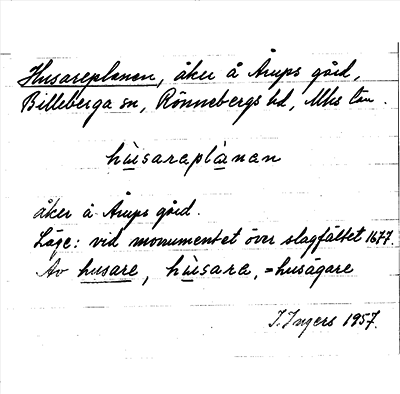 Husareplanen, åker å Årups gård,
Billeberga sn, Rönnebergs hd, Mhs län.
hùsaraplànan
åker å Årups gård.
Läge: vid monumentet över slagfältet 1677.
Av husare, hùsara, = husägare
I. Ingers 1957.